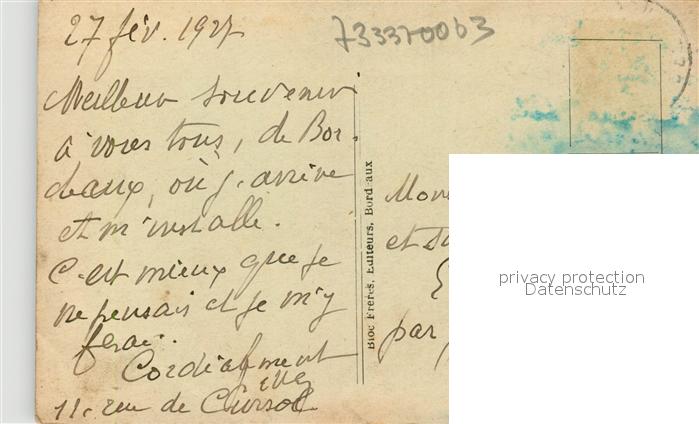 27 fév. 1927
733370063
Meilleur souvenir
à vous tous, de Bor-
deaux, où j'arrive
et m'installe.
C'est mieux que je
ne pensais et je m'y
ferai.
Cordialement
11, rue de Cursol
Bloc Frères, Editeurs, Bordeaux
et
par
privacy protection
Datenschutz